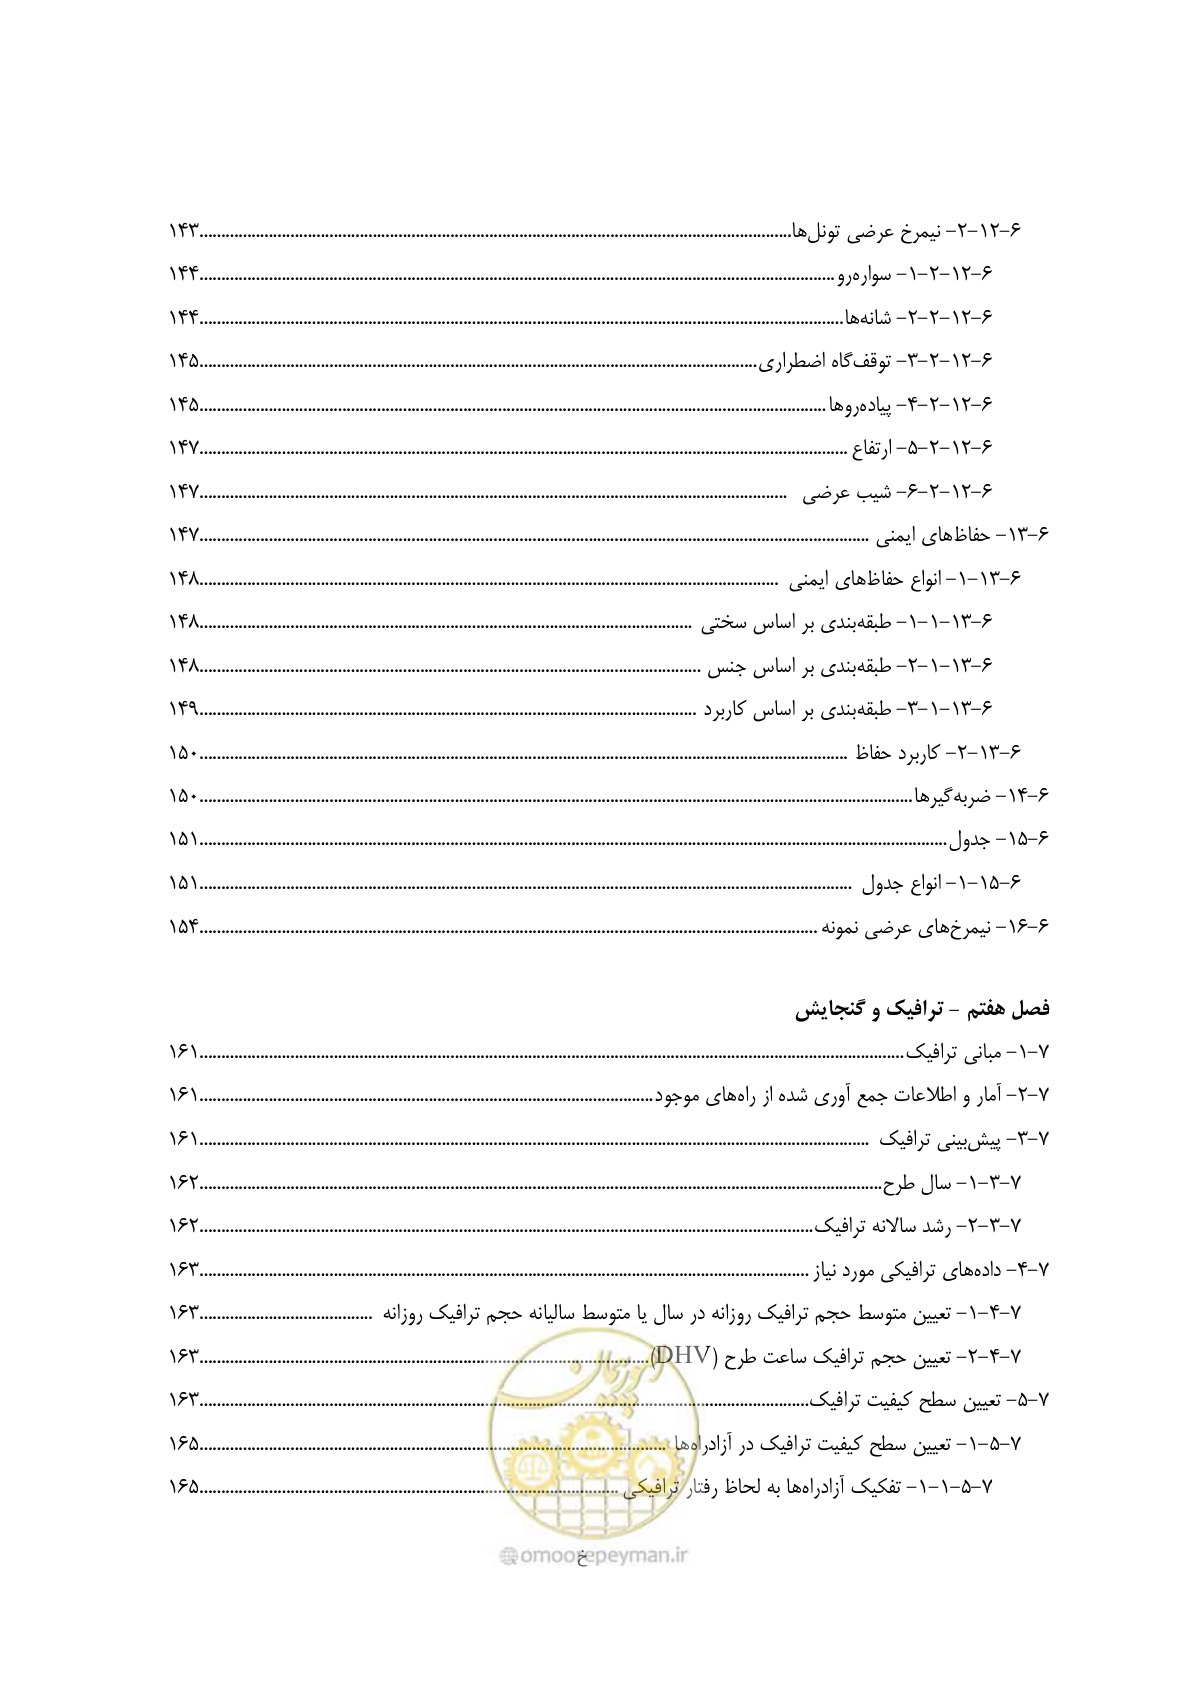 ۶-۱۲-۲- نیمرخ عرضی تونل‌ها........................۱۴۳
۶-۱۲-۲-۱- سواره‌رو........................۱۴۴
۶-۱۲-۲-۲- شانه‌ها........................۱۴۴
۶-۱۲-۲-۳- توقف‌گاه اضطراری........................۱۴۵
۶-۱۲-۲-۴- پیاده‌روها........................۱۴۵
۶-۱۲-۲-۵- ارتفاع ........................۱۴۷
۶-۱۲-۲-۶- شیب عرضی ........................۱۴۷
۶-۱۳- حفاظ‌های ایمنی ........................۱۴۷
۶-۱۳-۱- انواع حفاظ‌های ایمنی ........................۱۴۸
۶-۱۳-۱-۱- طبقه‌بندی بر اساس سختی ........................۱۴۸
۶-۱۳-۱-۲- طبقه‌بندی بر اساس جنس ........................۱۴۸
۶-۱۳-۱-۳- طبقه‌بندی بر اساس کاربرد ........................۱۴۹
۶-۱۳-۲- کاربرد حفاظ ........................۱۵۰
۶-۱۴- ضربه‌گیرها........................۱۵۰
۶-۱۵- جدول........................۱۵۱
۶-۱۵-۱- انواع جدول ........................۱۵۱
۶-۱۶- نیمرخ‌های عرضی نمونه ........................۱۵۴
فصل هفتم - ترافیک و گنجایش
۷-۱- مبانی ترافیک........................۱۶۱
۷-۲- آمار و اطلاعات جمع آوری شده از راه‌های موجود........................۱۶۱
۷-۳- پیش‌بینی ترافیک ........................۱۶۱
۷-۳-۱- سال طرح........................۱۶۲
۷-۳-۲- رشد سالانه ترافیک........................۱۶۲
۷-۴- داده‌های ترافیکی مورد نیاز ........................۱۶۳
۷-۴-۱- تعیین متوسط حجم ترافیک روزانه در سال یا متوسط سالیانه حجم ترافیک روزانه ........................۱۶۳
۷-۴-۲- تعیین حجم ترافیک ساعت طرح (DHV)........................۱۶۳
۷-۵- تعیین سطح کیفیت ترافیک........................۱۶۳
۷-۵-۱- تعیین سطح کیفیت ترافیک در آزادراه‌ها ........................۱۶۵
۷-۵-۱-۱- تفکیک آزادراه‌ها به لحاظ رفتار ترافیکی ........................۱۶۵
امور پیمان
@omoorepeyman.ir
خ